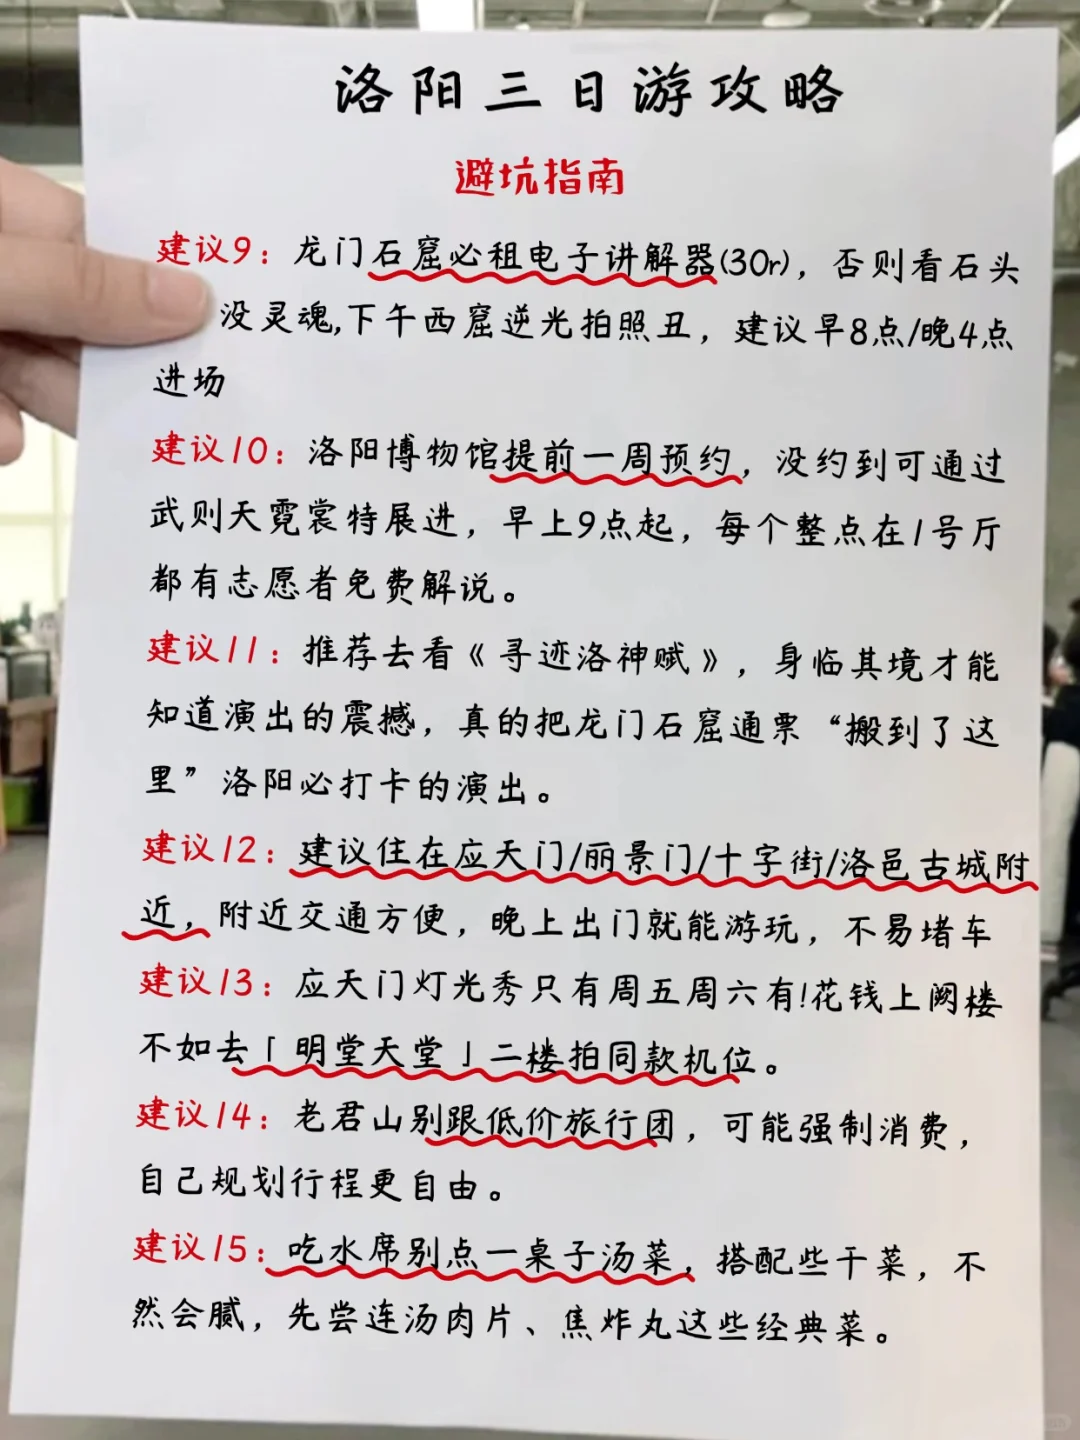 洛阳三日游攻略
避坑指南
建议9：龙门石窟必租电子讲解器(30r)，否则看石头
没灵魂,下午西窟逆光拍照丑，建议早8点/晚4点
进场
建议10：洛阳博物馆提前一周预约，没约到可通过
武则天霓裳特展进，早上9点起，每个整点在1号厅
都有志愿者免费解说。
建议11：推荐去看《寻迹洛神赋》，身临其境才能
知道演出的震撼，真的把龙门石窟通票“搬到了这
里”洛阳必打卡的演出。
建议12：建议住在应天门/丽景门/十字街/洛邑古城附
近，附近交通方便，晚上出门就能游玩，不易堵车
建议13：应天门灯光秀只有周五周六有!花钱上阙楼
不如去「明堂天堂」二楼拍同款机位。
建议14：老君山别跟低价旅行团，可能强制消费，
自己规划行程更自由。
建议15：吃水席别点一桌子汤菜，搭配些干菜，不
然会腻，先尝连汤肉片、焦炸丸这些经典菜。